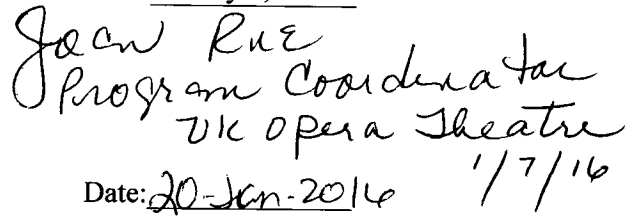 Joan Rue
Program Coordinator
UK Opera Theatre
1/7/16
Date: 20-Jan-2016